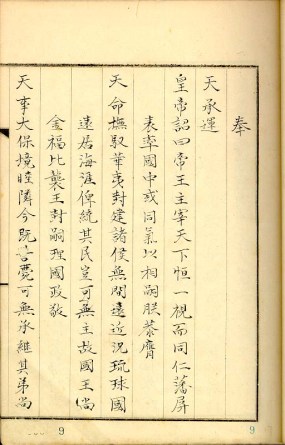 奉
天承運
皇帝詔曰帝王主宰天下恒一視而同仁藩屏
表率國中或同氣以相嗣朕恭膺
天命撫馭華夷封建諸侯無間遠近況琉球國
遠居海涯俾統其民豈可無主故國王尚
金福比襲王封嗣理國政敬
天事大保境睦隣今既云薨可無承繼其弟尚
9
9